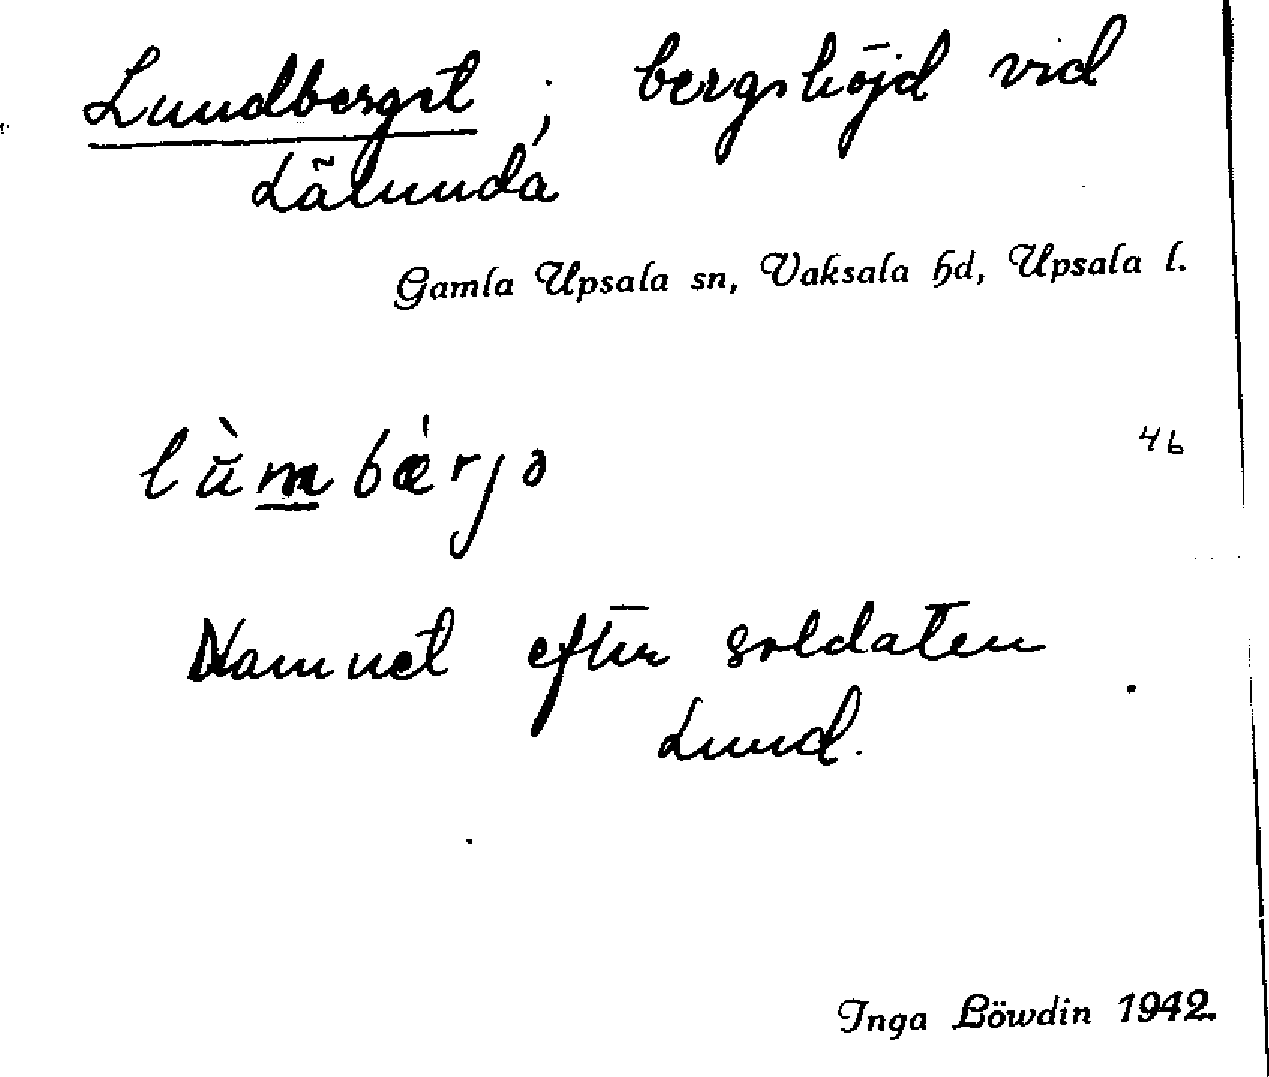 Lundberget; bergshöjd vid
Lälunda
Gamla Upsala sn, Vaksala hd, Upsala l.
46
lùmbǽrjə
Namnet efter soldaten
Lund.
Inga Löwdin 1942.